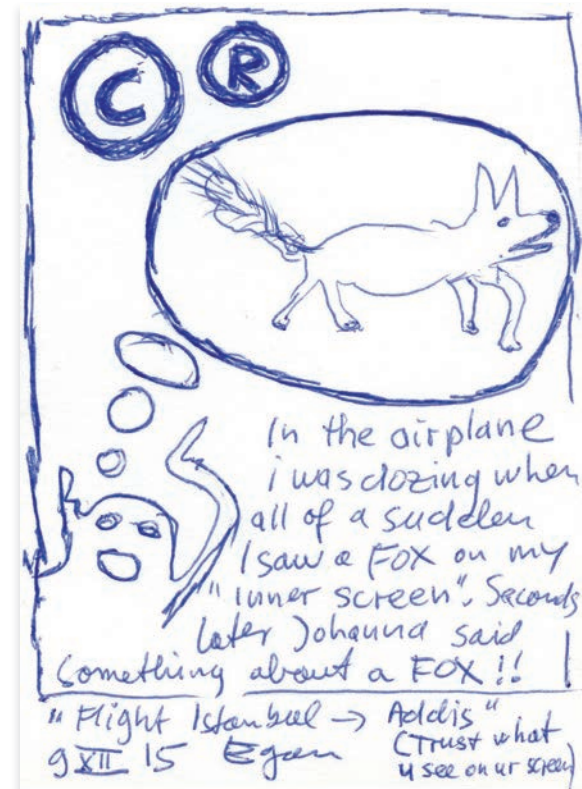 C R
In the airplane
i was dozing when
all of a sudden
I saw a FOX on my
"inner screen". Seconds
later Johanna said
something about a FOX!!
"Flight Istanbul → Addis"
9 XII 15 Egon (Trust what
u see on ur screen)